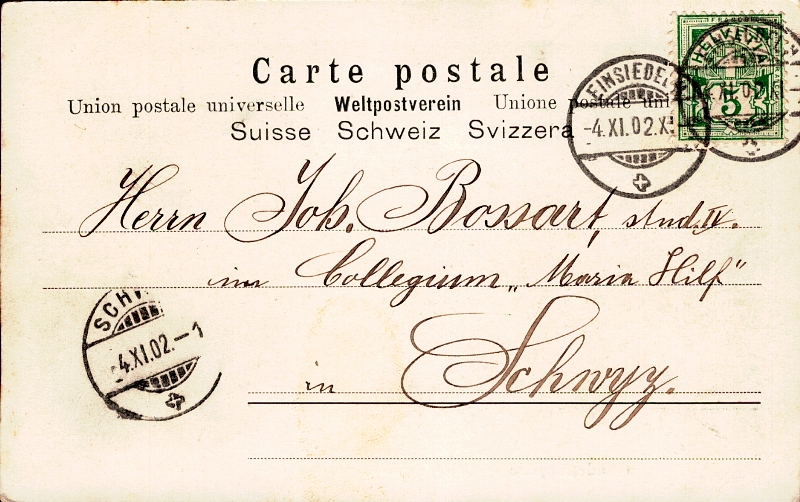 Carte postale
Union postale universelle Weltpostverein Unione postale uni
Suisse Schweiz Svizzera
FRANCO
HELVETIA
5
EINSIEDEL
-4.XI.02.X
Herrn Joh. Bossart, stud. IV.
im Collegium „Maria Hilf"
in Schwyz.
SCHW
-4.XI.02.-1